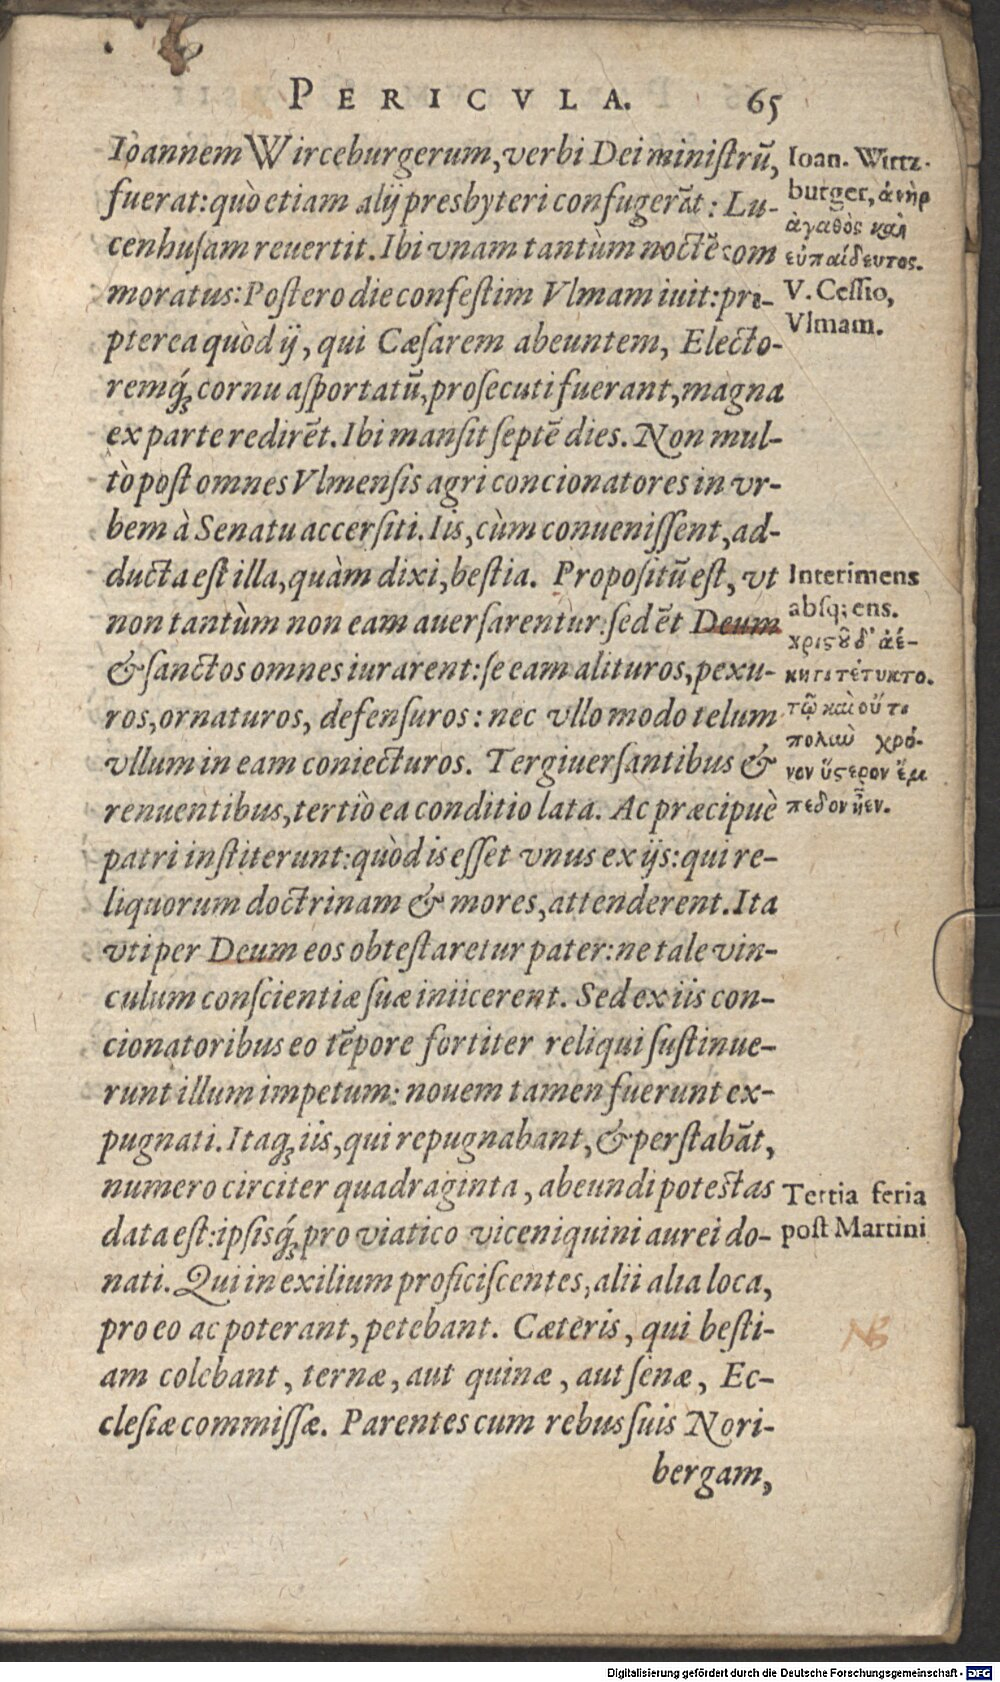 PERICVLA. 65
Ioannem Wirceburgerum, verbi Dei ministrũ,
fuerat: quò etiam alij presbyteri confugerãt: Lu-
cenhusam reuertit. Ibi vnam tantùm noctẽ com
moratus: Postero die confestim Vlmam iuit: pro-
pterea quòd ij, qui Cæsarem abeuntem, Electo-
remq́ꝫ cornu asportatũ, prosecuti fuerant, magna
ex parte redirẽt. Ibi mansit septẽ dies. Non mul-
tò post omnes Vlmensis agri concionatores in vr-
bem à Senatu accersiti. Iis, cùm conuenissent, ad-
ducta est illa, quàm dixi, bestia. Propositũ est, vt
non tantùm non eam auersarentur: sed ẽt Deum
& sanctos omnes iurarent: se eam alituros, pexu-
ros, ornaturos, defensuros: nec vllo modo telum
vllum in eam coniecturos. Tergiuersantibus &
renuentibus, tertiò ea conditio lata. Ac præcipuè
patri institerunt: quòd is esset vnus ex ijs: qui re-
liquorum doctrinam & mores, attenderent. Ita
vti per Deum eos obtestaretur pater: ne tale vin-
culum conscientiæ suæ iniicerent. Sed ex iis con-
cionatoribus eo tẽpore fortiter reliqui sustinue-
runt illum impetum: nouem tamen fuerunt ex-
pugnati. Itaqꝫ iis, qui repugnabant, & perstabãt,
numero circiter quadraginta, abeundi potestas
data est: ipsisq́ꝫ pro viatico viceni quini aurei do-
nati. Qui in exilium proficiscentes, alii alia loca,
pro eo ac poterant, petebant. Cæteris, qui besti-
am colebant, ternæ, aut quinæ, aut senæ, Ec-
clesiæ commissæ. Parentes cum rebus suis Nori-
bergam,
Ioan. Wirtz-
burger, ἀνὴρ
ἀγαθὸς καὶ
εὐπαίδευτος.
V. Cessio,
Vlmam.
Interimens
absq; ens.
χρισοῦ δ' ἀέ-
κητι τέτυκτο.
τῷ καὶ οὔ τι
πολὺν χρό-
νον ὕςερον ἔμ
πεδον ἦεν.
Tertia feria
post Martini
NB
Digitalisierung gefördert durch die Deutsche Forschungsgemeinschaft - DFG